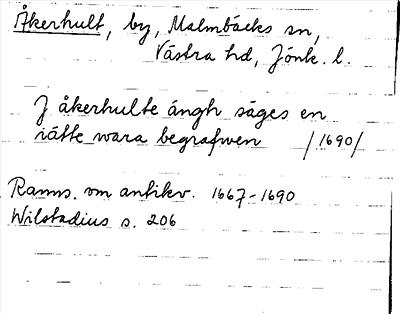 Åkerhult, by, Malmbäcks sn,
Västra hd, Jönk. l.
J åkerhulte ängh säges en
rätte wara begrafwen /1690/
Ranns. om antikv. 1667-1690
Wilstadius s. 206